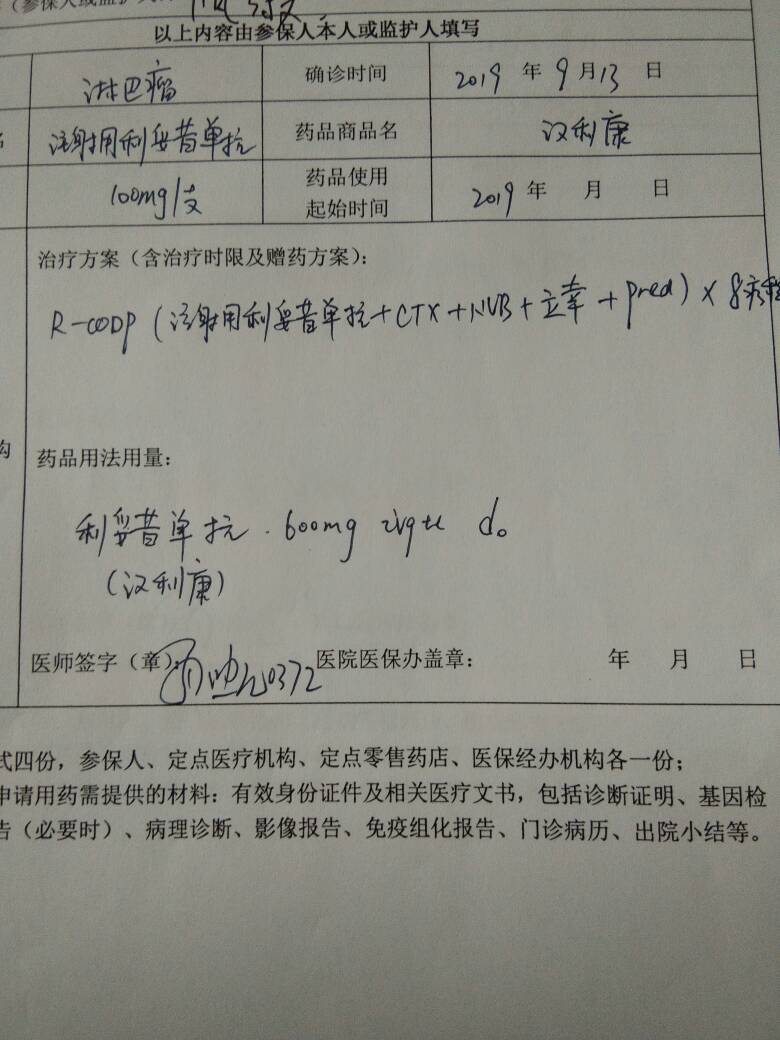 （参保人或监护人
以上内容由参保人本人或监护人填写
淋巴瘤 确诊时间 2019 年 9 月 13 日
注射用利妥昔单抗 药品商品名 汉利康
100mg/支 药品使用起始时间 2019 年 月 日
治疗方案（含治疗时限及赠药方案）：
R-CODP（注射用利妥昔单抗+CTX+NVB+立幸+pred）× 8疗程
药品用法用量：
利妥昔单抗 . 600mg ivgtt d0
（汉利康）
医师签字（章） 0372 医院医保办盖章： 年 月 日
式四份，参保人、定点医疗机构、定点零售药店、医保经办机构各一份；
申请用药需提供的材料：有效身份证件及相关医疗文书，包括诊断证明、基因检
告（必要时）、病理诊断、影像报告、免疫组化报告、门诊病历、出院小结等。